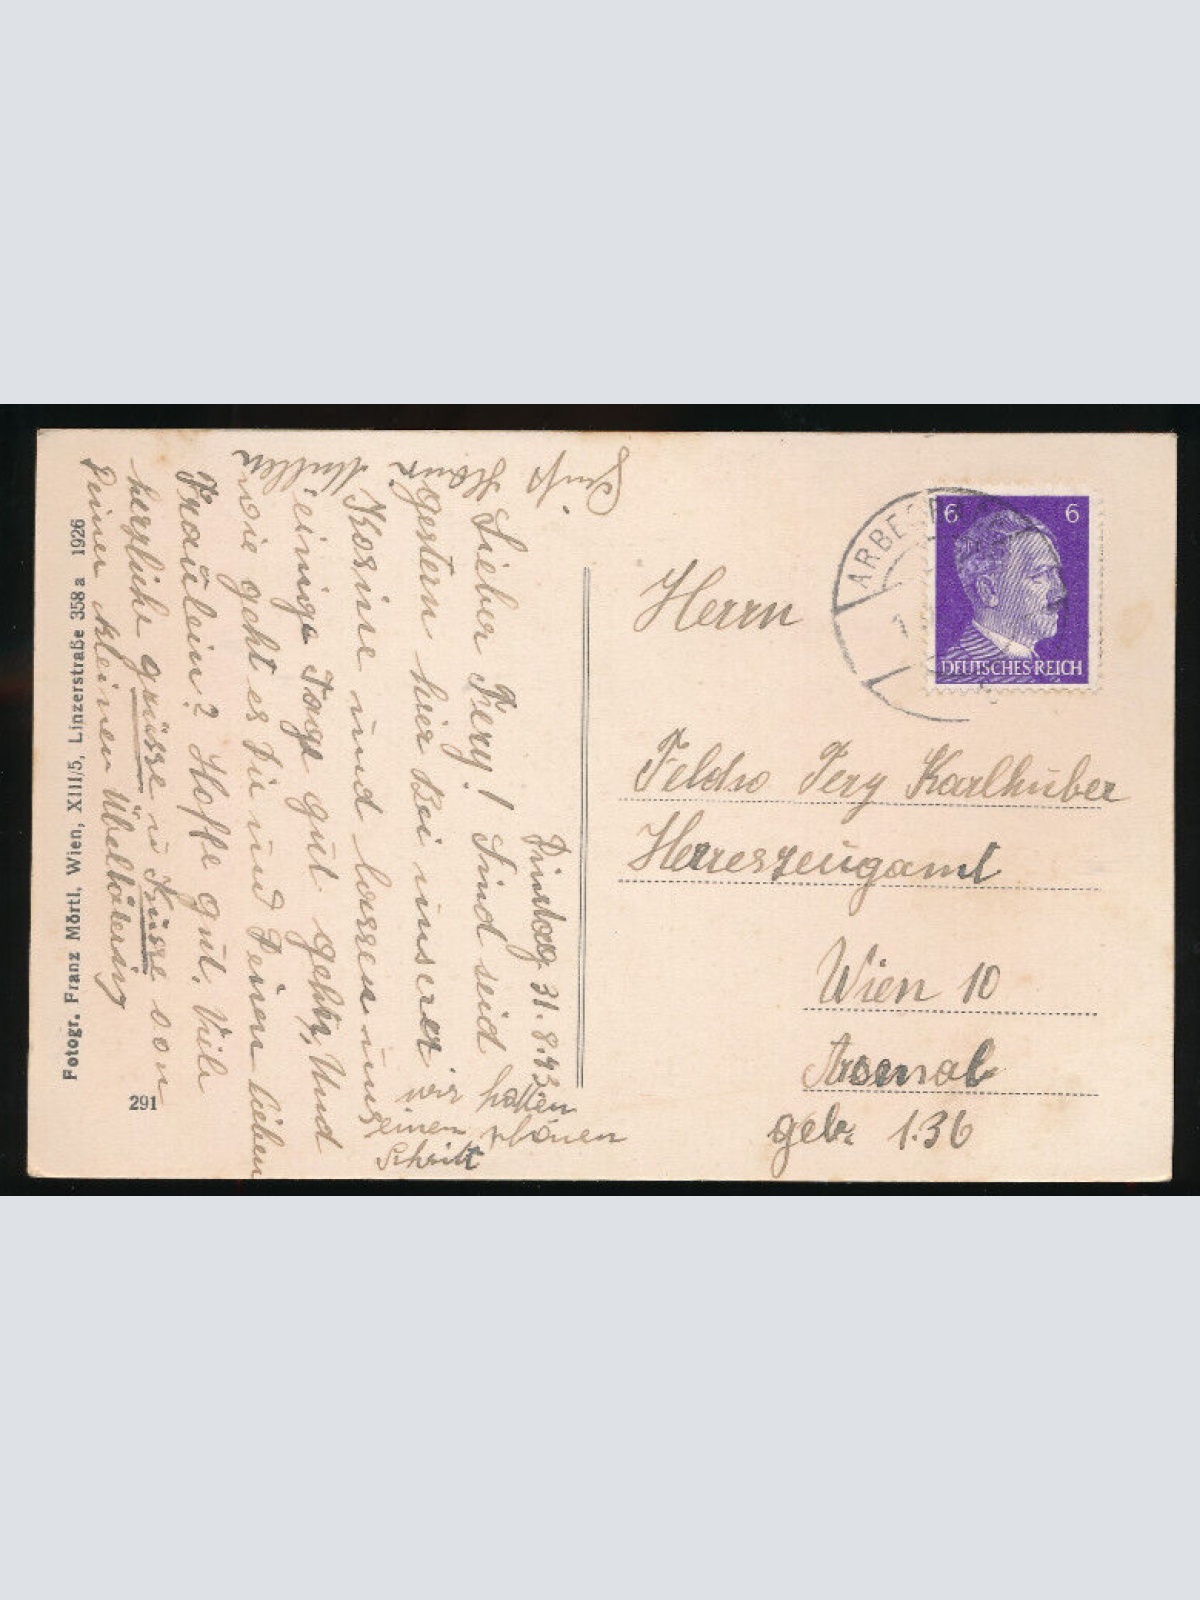 Dimbag 31. 8.43
Lieber Fery! Sind seid
gestern hier bei unserer
Kosine und lassen uns
einige Tage gut gehn, Und
wie geht es Dir und Deinem lieben
Fräulein? Hoffe gut. Viele
herzliche grüsse u Küsse von
Deiner kleinen Übeltäterin
wir hatten
einen schönen
Schritt
Gruß
Hans
Müller
Fotogr. Franz Mörtl, Wien, XIII/5, Linzerstraße 358 a 1926
291
ARBESB
6 6
DEUTSCHES REICH
Herrn
Feldw Fery Karlhuber
Herreszeugamt
Wien 10
Arsenal
geb. 1.36